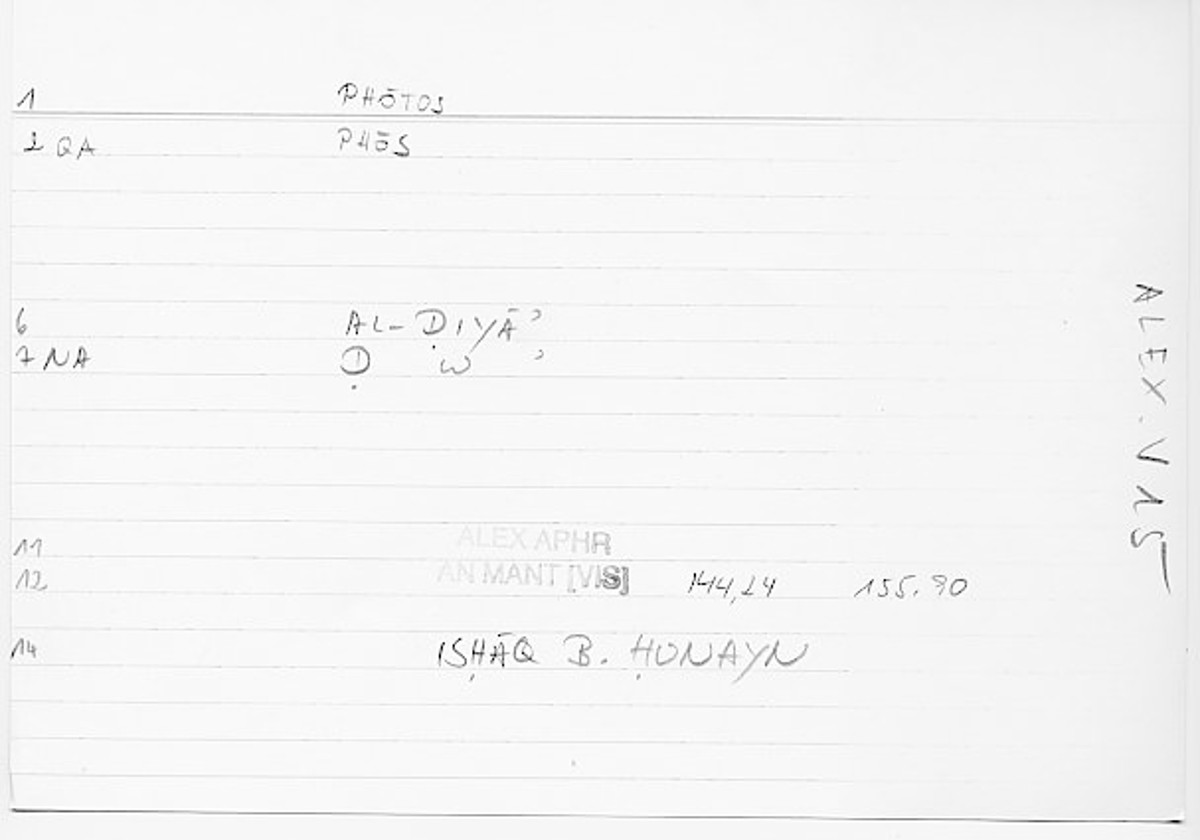 1 PHŌTOS
2 QA PHŌS
6 AL-ḌIYĀʾ
7 NA Ḍ W ʾ
11 ALEX APHR
12 AN MANT [VIS] 144,24 155.90
14 ISḤĀQ B. ḤUNAYN
ALEX. V 15